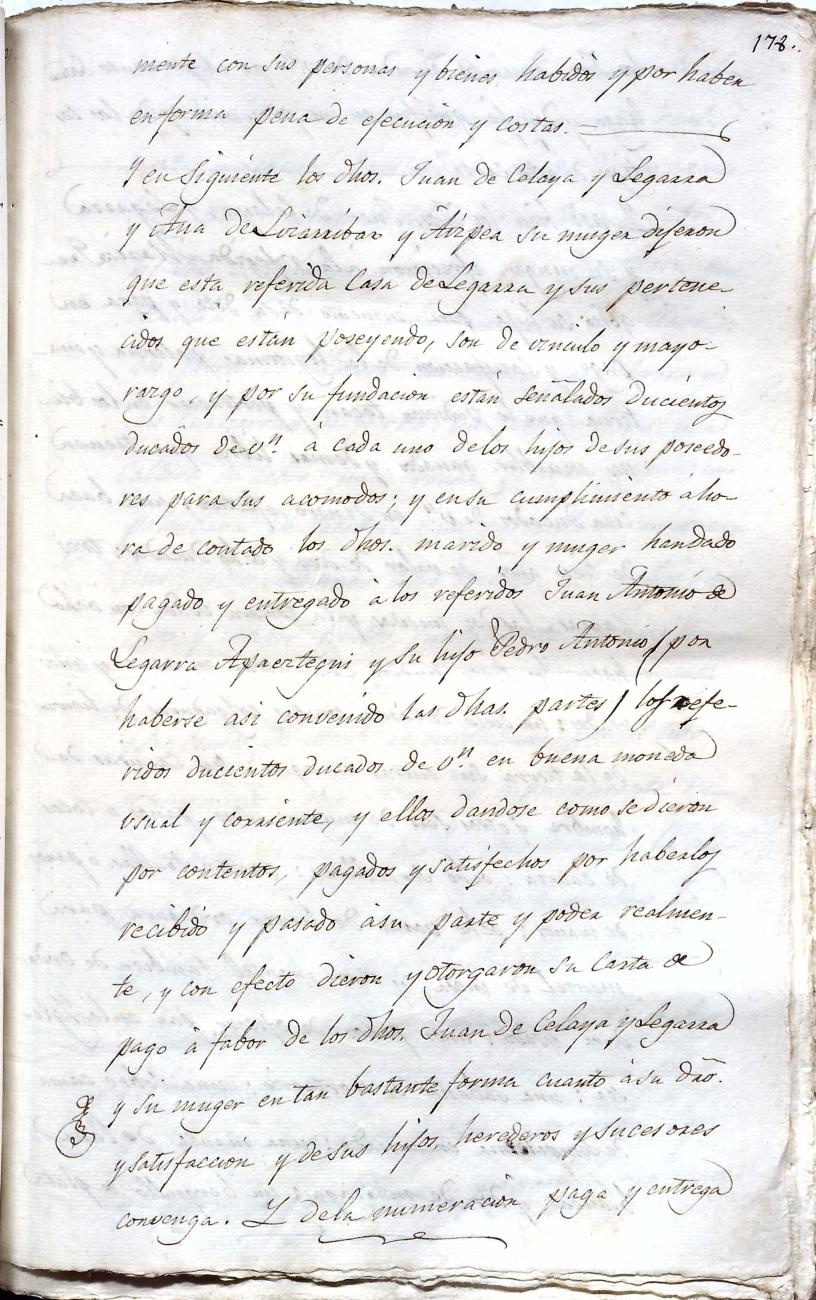 178.
mente con sus personas y bienes habidos y por haber
en forma pena de ejecucion y costas.
Y en siguiente los dhos. Juan de Celaya y Legarra
y Ana de Lizarribar y Aizpea su muger dijeron
que esta referida Casa de Legarra y sus pertene-
cidos que están poseyendo, son de vinculo y mayo-
razgo, y por su fundacion están señalados ducientos
ducados de v.n à cada uno de los hijos de sus poseedo-
res para sus acomodos; y en su cumplimiento aho-
ra de contado los dhos. marido y muger han dado
pagado y entregado à los referidos Juan Antonio de
Legarra Apaeztegui y su hijo Pedro Antonio (por
haberse asi convenido las dhas. partes) los refe-
ridos ducientos ducados de v.n en buena moneda
usual y corriente, y ellos dandose como se dieron
por contentos, pagados y satisfechos por haberlos
recibido y pasado à su parte y poder realmen-
te, y con efecto dieron y otorgaron su Carta de
pago à fabor de los dhos. Juan de Celaya y Legarra
y su muger en tan bastante forma cuanto à su dro.
y satisfaccion y de sus hijos, herederos y sucesores
convenga. Y de la numeracion paga y entrega